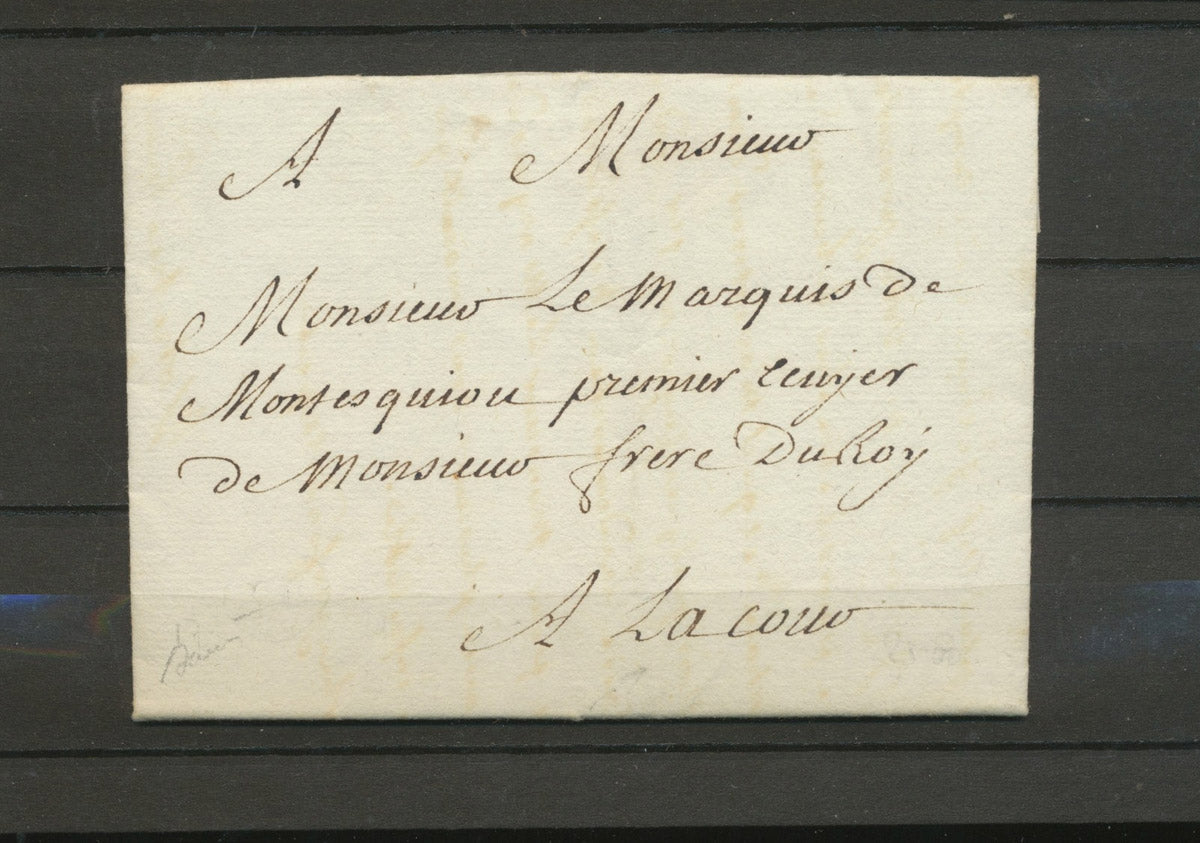 A Monsieur
Monsieur Le Marquis de
Montesquiou premier Ecuyer
de Monsieur frere Du Roÿ
A La cour